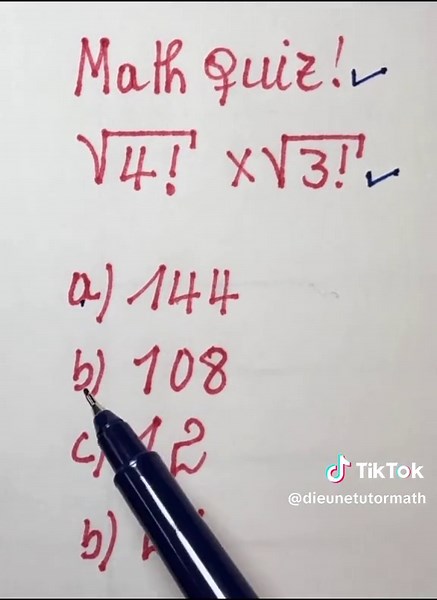 Math Quiz!
√4! x√3!
a) 144
b) 108
c) 12
b)
TikTok
@dieunetutormath